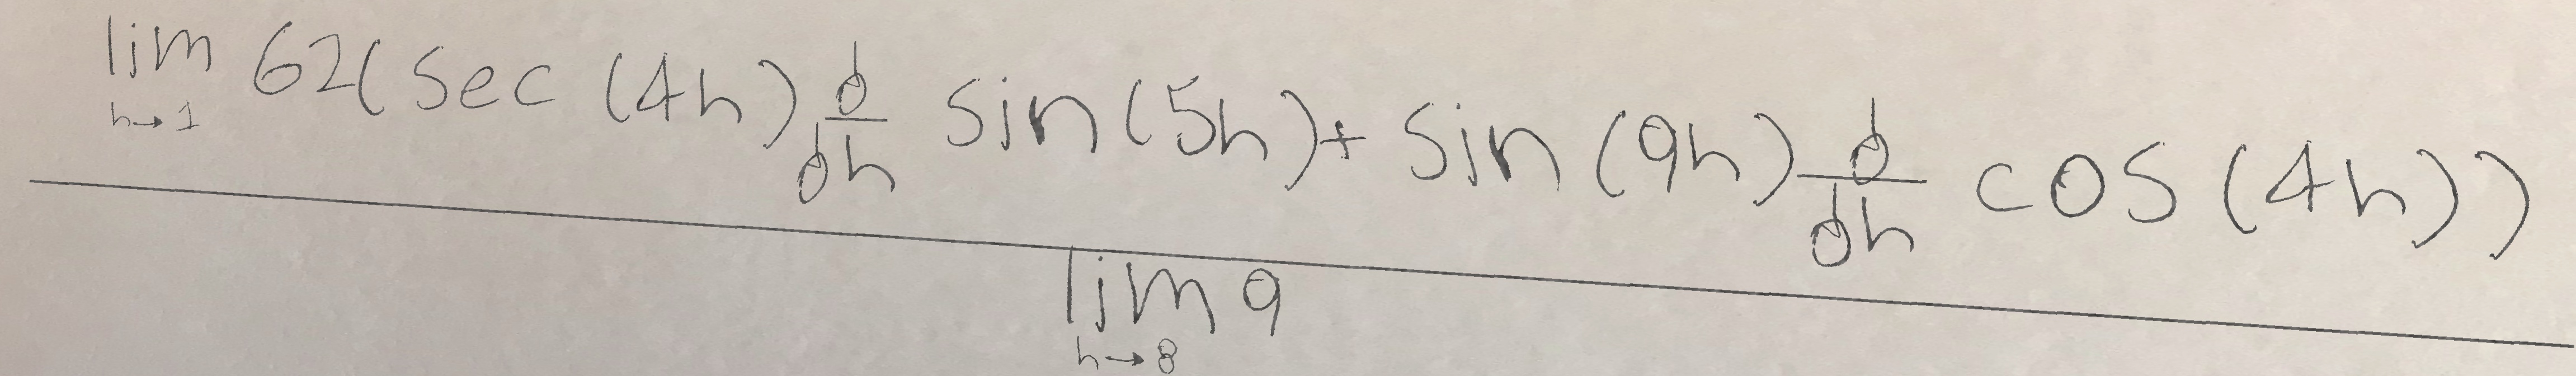 \frac{\lim_{h \to 1} 62(\sec(4h) \frac{d}{dh} \sin(5h) + \sin(9h) \frac{d}{dh} \cos(4h))}{\lim_{h \to 8} 9}